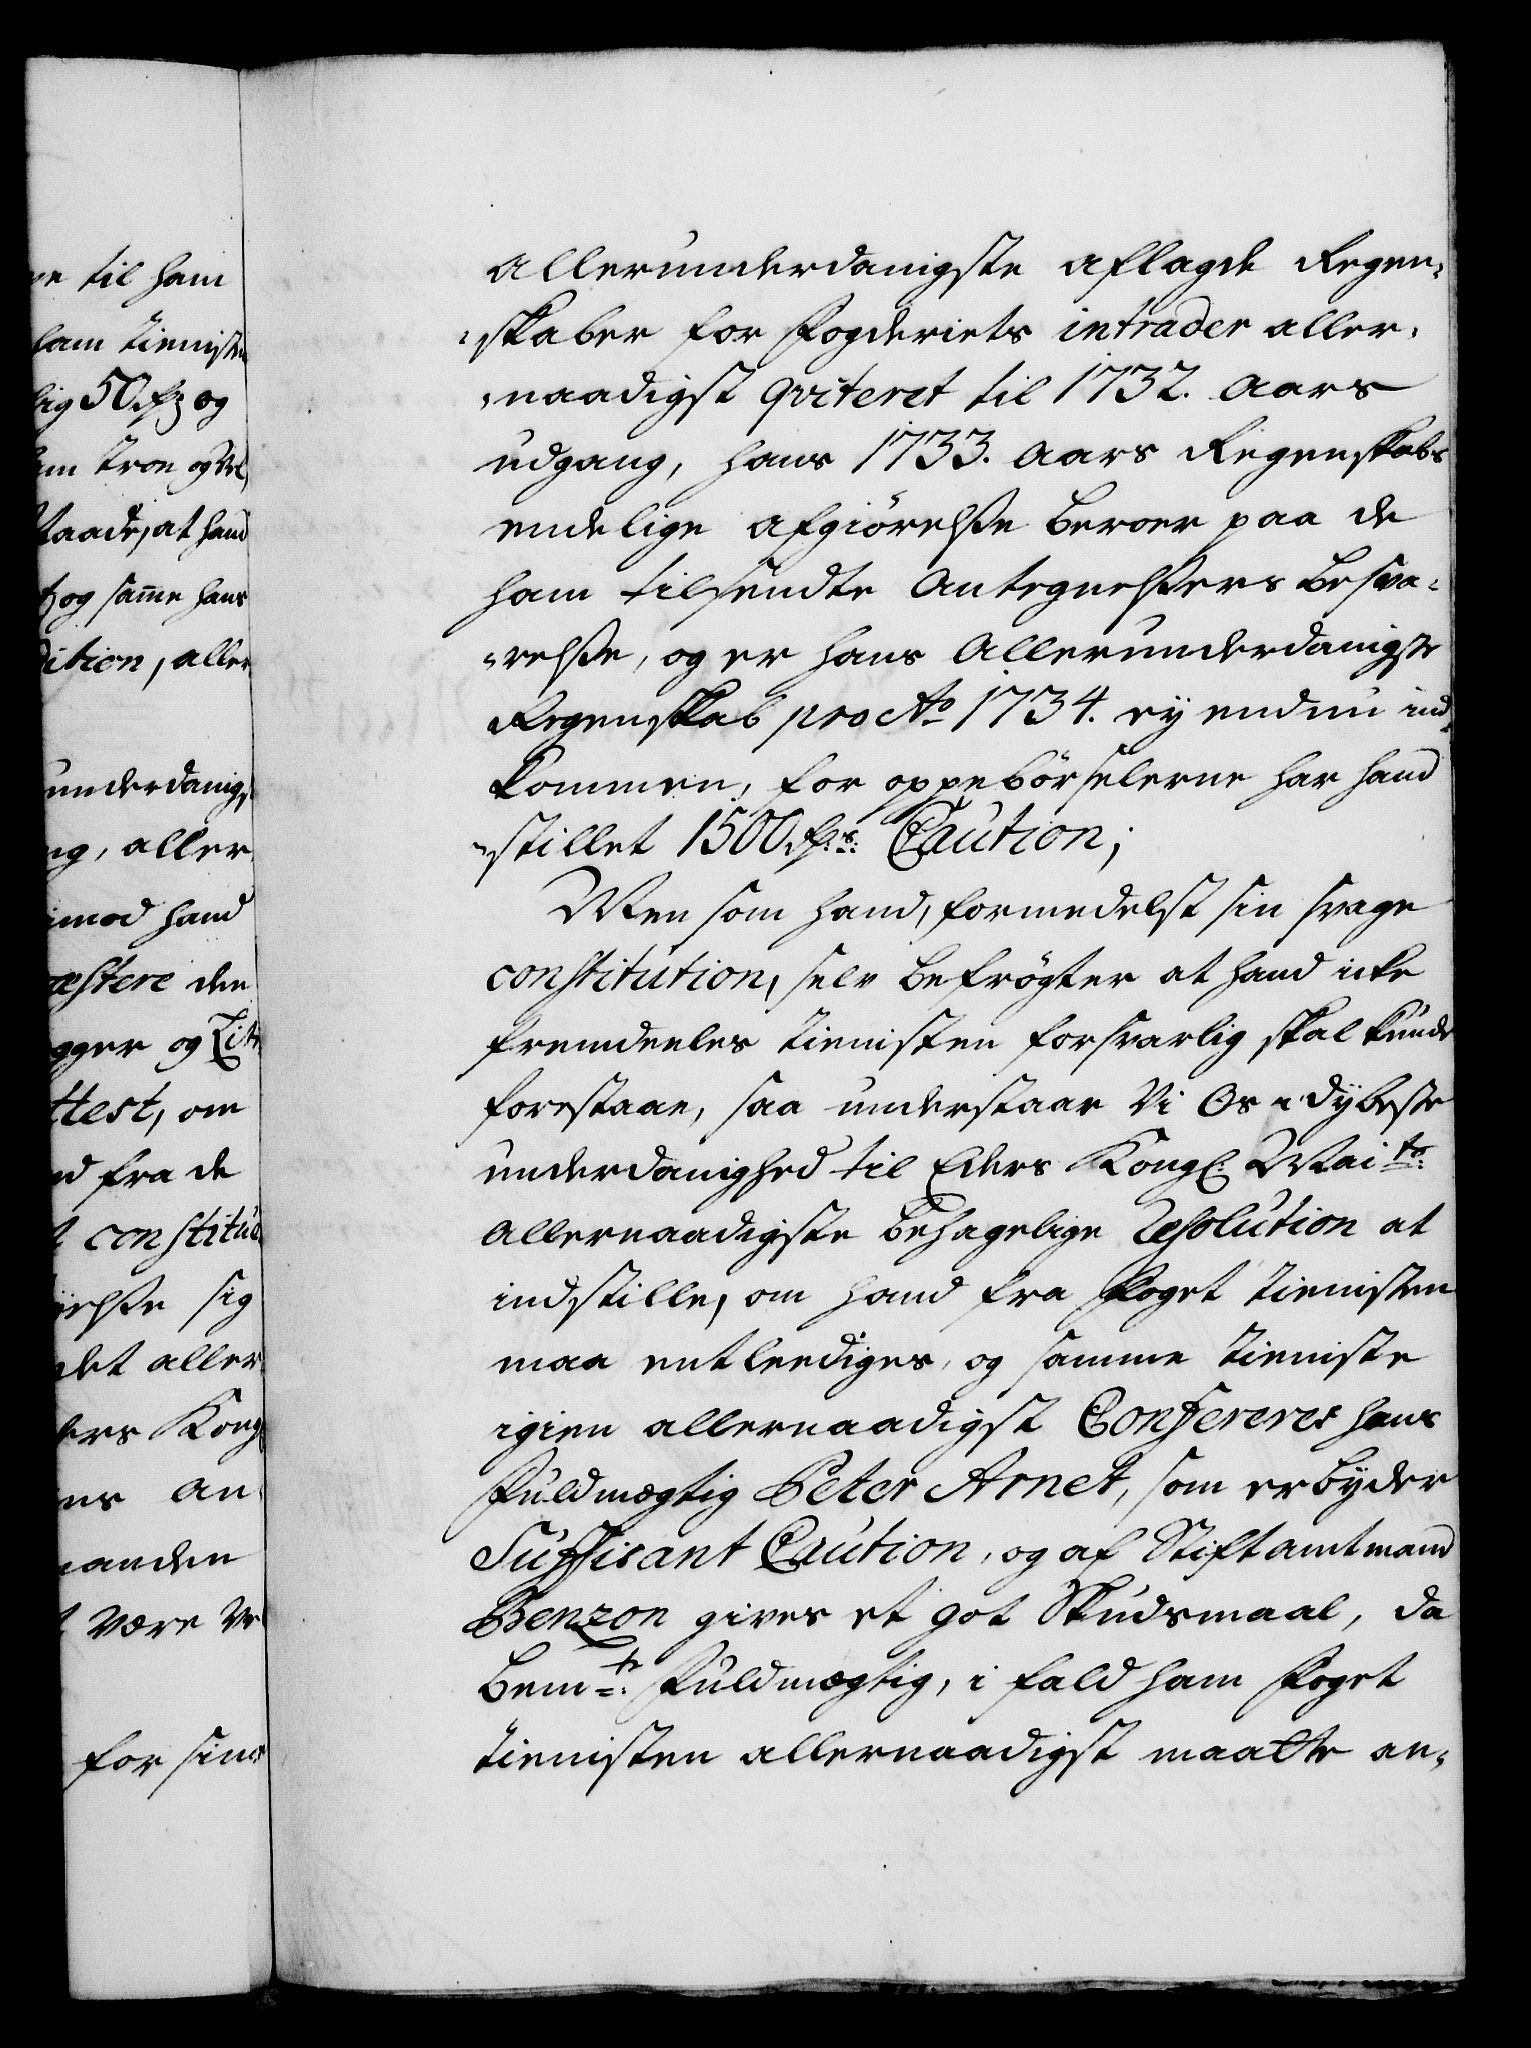 re til ham
ham tienisten
lig 50 rdr og
troe og
at hand
og samme hans
dition, aller
underdanigs
ng, aller
imod hand
æstere den
gger og
ttest, om
fra de
constitue
else sig
det aller
ers Kong
ens an
manden
være
for sine
allerunderdanigste aflagde Regen-
-skaber for Fogderiets intrader aller-
-naadigst qviteret til 1732. Aars
udgang, hans 1733. Aars Regenskabs
endelige afgiörelsse beroer paa de
ham tilsendte Antegnelssers besva-
-relsse, og er hans Allerunderdanigste
Regenskab pro Ao 1734. ey endnu ind-
kommen, for oppebörselerne har hand
-stillet 1500 rdrs: Caution;
Men som hand, formedelst sin svage
constitution, selv befrögter at hand icke
fremdeeles tienisten forsvarlig skal kunde
forestaae, saa understaar Vi Os i dybeste
underdanighed til Eders Kongl: Maits:
Allernaadigste behagelige Resolution at
indstille, om hand fra Foget tienisten
maa entleediges, og samme tieniste
igien allernaadigst Confereres hans
Fuldmægtig Peter Arnet, som erbyder
Suffisant Caution, og af Stiftamtmand
Benzon gives et got Skudsmaal, da
bemte: Fuldmægtig, i fald ham Foget
tienisten allernaadigst maatte an-